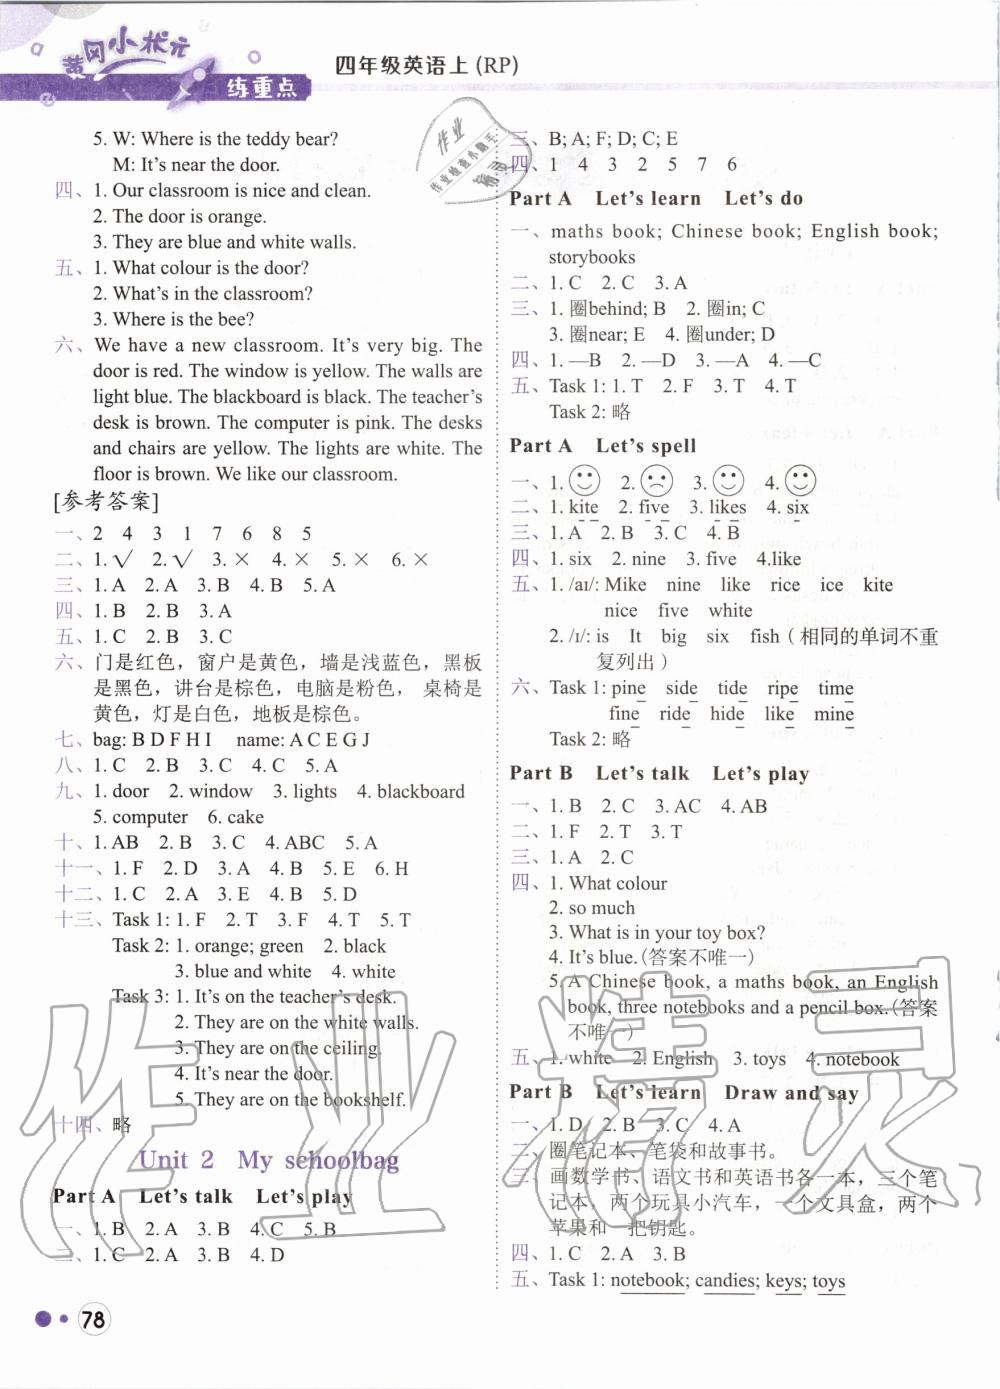 黄冈小状元
练重点
四年级英语上(RP)
5. W: Where is the teddy bear?
M: It's near the door.
四、1. Our classroom is nice and clean.
2. The door is orange.
3. They are blue and white walls.
五、1. What colour is the door?
2. What's in the classroom?
3. Where is the bee?
六、We have a new classroom. It's very big. The
door is red. The window is yellow. The walls are
light blue. The blackboard is black. The teacher's
desk is brown. The computer is pink. The desks
and chairs are yellow. The lights are white. The
floor is brown. We like our classroom.
[参考答案]
一、2 4 3 1 7 6 8 5
二、1. √ 2. √ 3. × 4. × 5. × 6. ×
三、1. A 2. A 3. B 4. B 5. A
四、1. B 2. B 3. A
五、1. C 2. B 3. C
六、门是红色，窗户是黄色，墙是浅蓝色，黑板
是黑色，讲台是棕色，电脑是粉色， 桌椅是
黄色，灯是白色，地板是棕色。
七、bag: B D F H I name: A C E G J
八、1. C 2. B 3. C 4. C 5. A
九、1. door 2. window 3. lights 4. blackboard
5. computer 6. cake
十、1. AB 2. B 3. C 4. ABC 5. A
十一、1. F 2. D 3. A 4. B 5. E 6. H
十二、1. C 2. A 3. A 4. B 5. D
十三、Task 1: 1. F 2. T 3. F 4. T 5. T
Task 2: 1. orange; green 2. black
3. blue and white 4. white
Task 3: 1. It's on the teacher's desk.
2. They are on the white walls.
3. They are on the ceiling.
4. It's near the door.
5. They are on the bookshelf.
十四、略
Unit 2 My schoolbag
Part A Let's talk Let's play
一、1. B 2. A 3. B 4. C 5. B
二、1. C 2. A 3. B 4. D
78
三、B; A; F; D; C; E
四、1 4 3 2 5 7 6
Part A Let's learn Let's do
一、maths book; Chinese book; English book;
storybooks
二、1. C 2. C 3. A
三、1. 圈behind; B 2. 圈in; C
3. 圈near; E 4. 圈under; D
四、1. —B 2. —D 3. —A 4. —C
五、Task 1: 1. T 2. F 3. T 4. T
Task 2: 略
Part A Let's spell
一、1. 2. 3. 4.
二、1. kite 2. five 3. likes 4. six
三、1. A 2. B 3. C 4. B
四、1. six 2. nine 3. five 4.like
五、1. /aɪ/: Mike nine like rice ice kite
nice five white
2. /ɪ/: is It big six fish（相同的单词不重
复列出）
六、Task 1: pine side tide ripe time
fine ride hide like mine
Task 2: 略
Part B Let's talk Let's play
一、1. B 2. C 3. AC 4. AB
二、1. F 2. T 3. T
三、1. A 2. C
四、1. What colour
2. so much
3. What is in your toy box?
4. It's blue.(答案不唯一)
5. A Chinese book, a maths book, an English
book, three notebooks and a pencil box.(答案
不唯一)
五、1. white 2. English 3. toys 4. notebook
Part B Let's learn Draw and say
一、1. D 2. B 3. C 4. A
二、圈笔记本、笔袋和故事书。
三、画数学书、语文书和英语书各一本，三个笔
记本，两个玩具小汽车，一个文具盒，两个
苹果和一把钥匙。
四、1. C 2. A 3. B
五、Task 1: notebook; candies; keys; toys
作业精灵